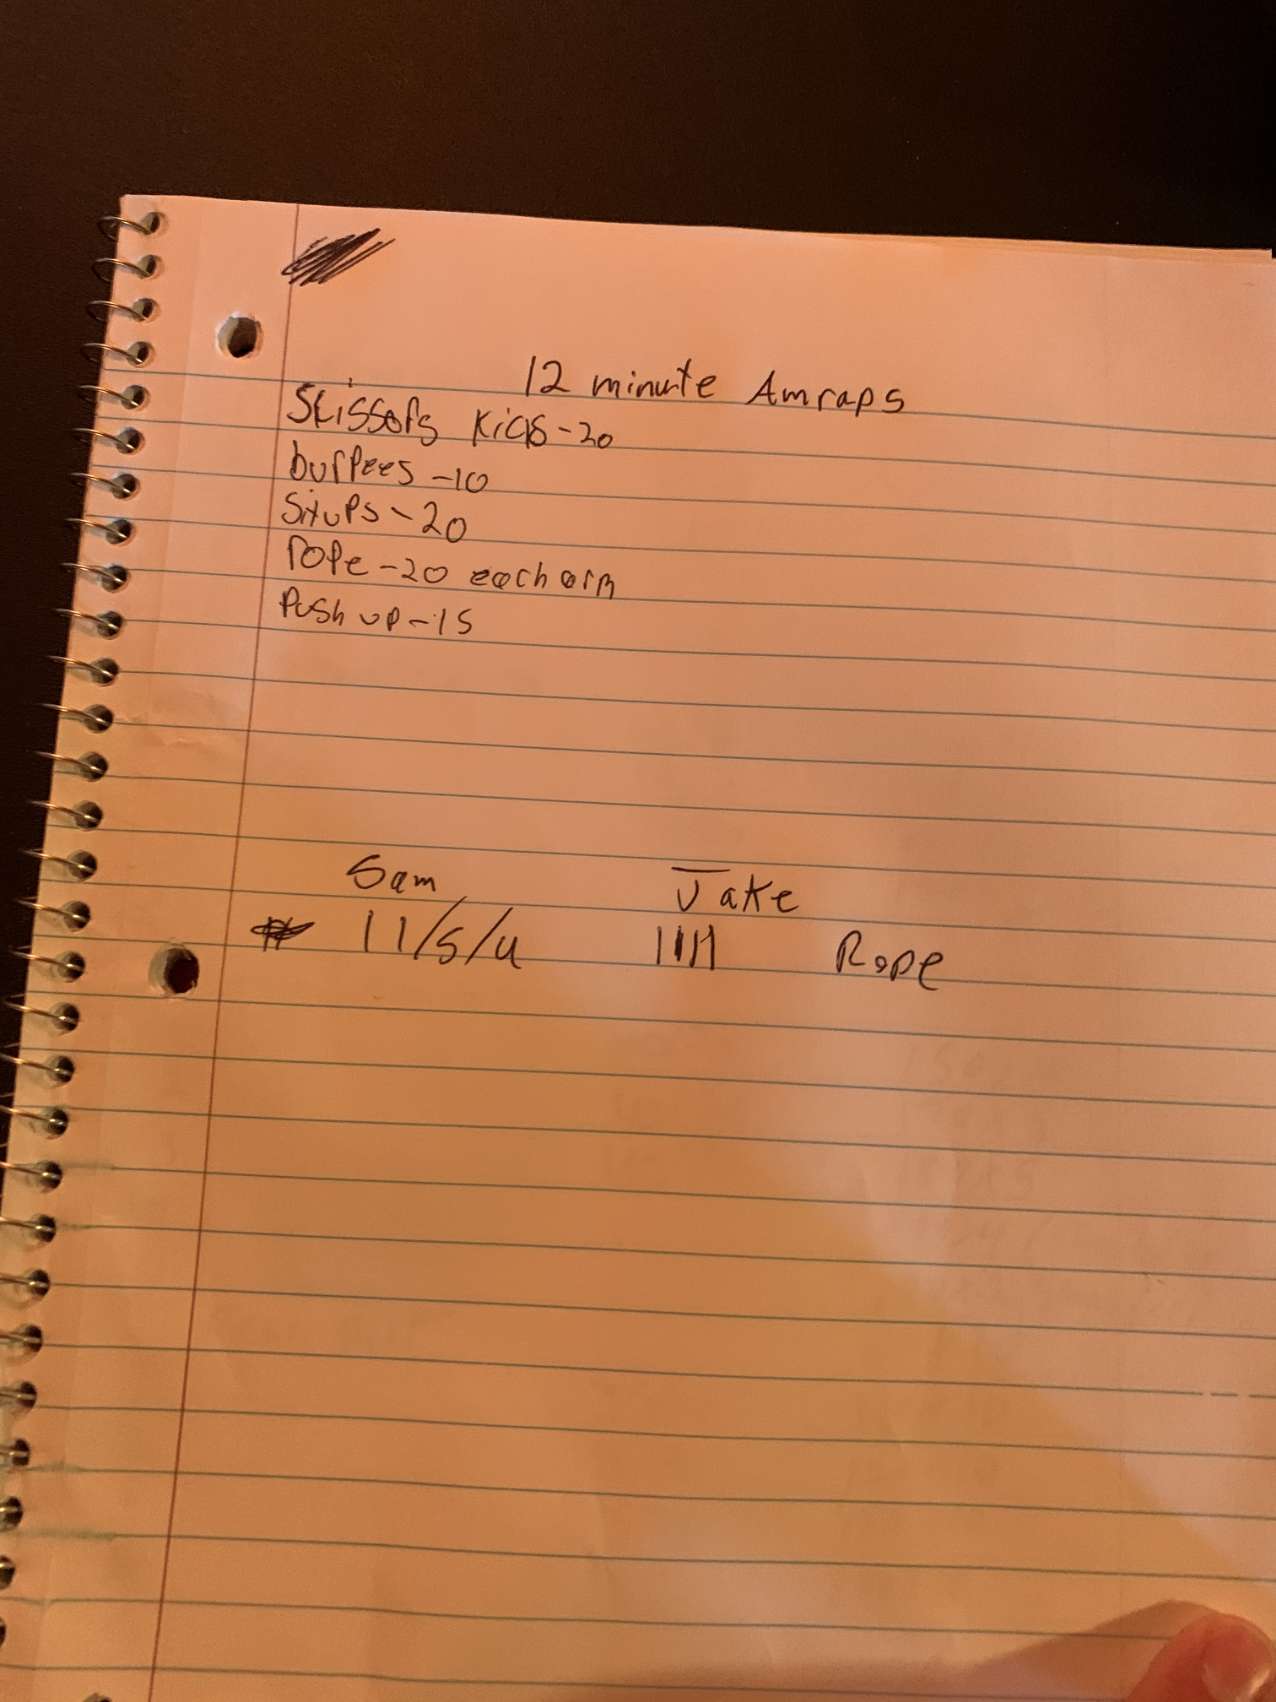 12 minute Amraps
Scissors Kicks-20
burpees-10
Situps-20
rope-20 each arm
Push up-15
Sam Jake
11/s/u IIII Rope